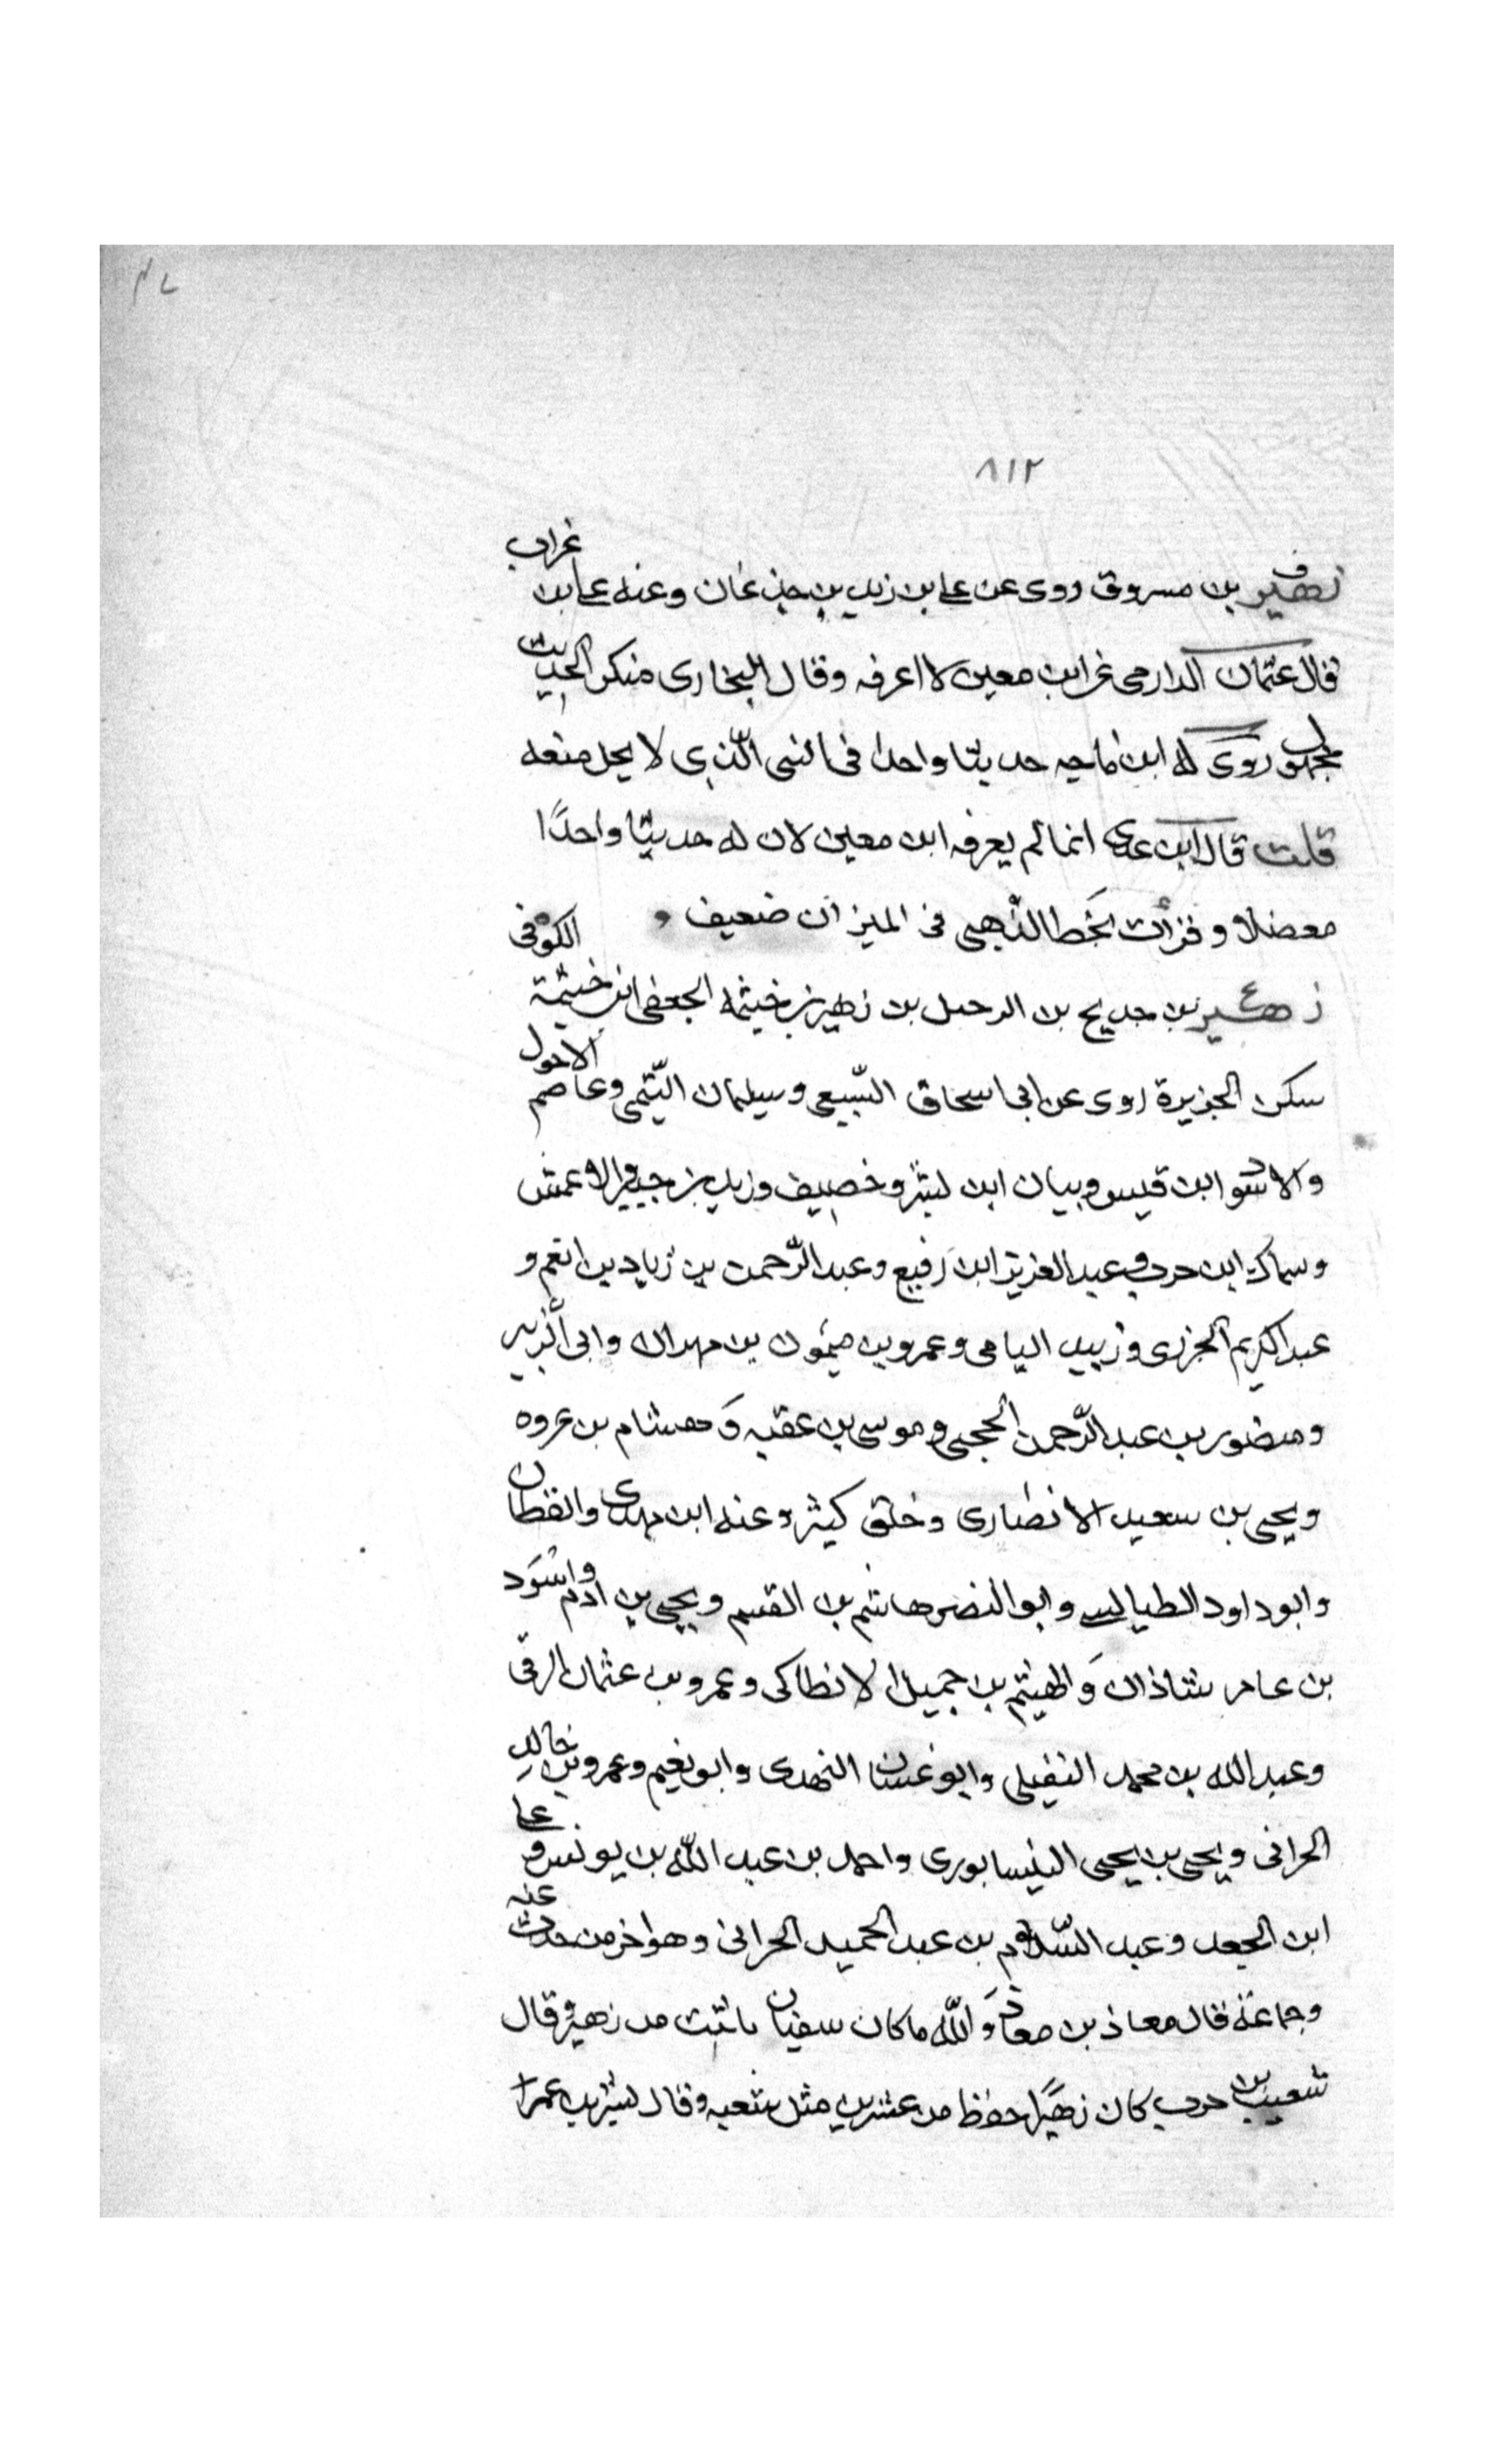 ٨١٢
زهير بن مسروق روى عن علي بن زيد بن جدعان وعنه علي بن غراب
قال عثمان الدارمي عن ابن معين لا اعرفه وقال البخاري منكر الحديث
مجهول روى له ابن ماجه حديثا واحدا في الشي الذي لا يحل منعه
قلت قال ابن عدي انما لم يعرفه ابن معين لان له حديثا واحدًا
معضلا وقرأت بخط الذهبي في الميزان ضعيف
ع زهير بن حديج بن الرحيل بن زهير بن خيثمه الجعفي ابو خيثمة الكوفي
سكن الجزيرة روى عن ابي اسحاق السّبيعي وسليمان التّيمي وعاصم الاحول
والاسود ابن قيس وبيان ابن بشر وخصيف وزيد بن جبير والاعمش
وسماك ابن حرب وعبد العزيز ابن رفيع وعبد الرّحمن بن زياد بن انعم و
عبد الكريم الجزري وزبيد اليامي وعمرو بن ميمون بن مهران وابي الزبير
ومنصور بن عبد الرّحمن الحجبي وموسى بن عقبه وَهشام بن عروه
ويحيى بن سعيد الانصاري وخلق كثير وعنه ابن مهدى والقطان
وابو داود الطيالسي وابو النضر هاشم بن القسم ويحيى بن ادم واسود
بن عامر شاذان وَالهيثم بن جميل الانطاكي وعمرو بن عثمان الرقي
وعبد الله بن محمد النفيلي وابو غسان النهدى وابو نعيم وعمرو بن خالد
الحراني ويحيى بن يحيى النيسابوري واحمد بن عبد اللّه بن يونس وعلي
ابن الجعد وعبد السّلام بن عبد الحميد الحراني وهو اخر من حدث عنه
وجماعة قال معاذ بن معاذ وَاللّه ما كان سفيان باثبت من زهير وقال
شعيب بن حرب كان زهيرًا حفظ من عشرين مثل شعبه وقال بشر بن عمر